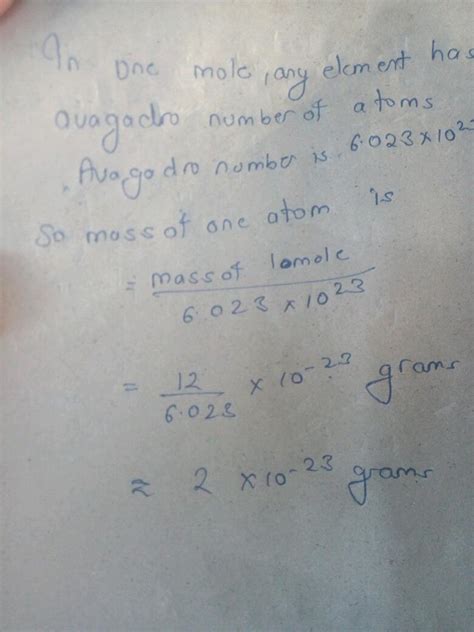 In one mole, any element has
avagadro number of atoms
. Avagadro number is 6.023×10²³
So mass of one atom is
= mass of 1 mole
6.023 × 10²³
= 12/6.023 × 10⁻²³ grams
≈ 2 × 10⁻²³ grams